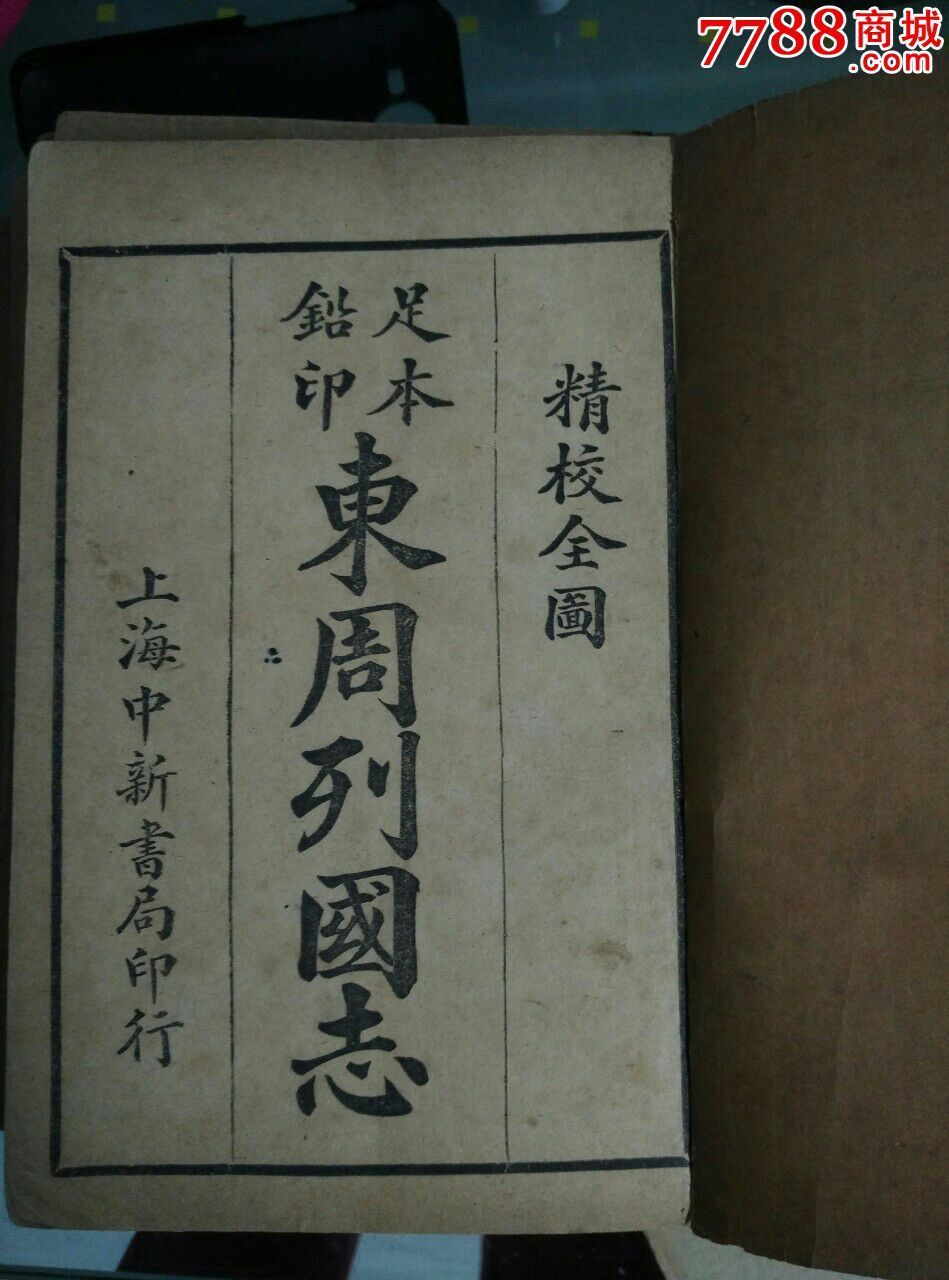 7788商城
.com
精校全圖
足本
鉛印
東周列國志
上海中新書局印行